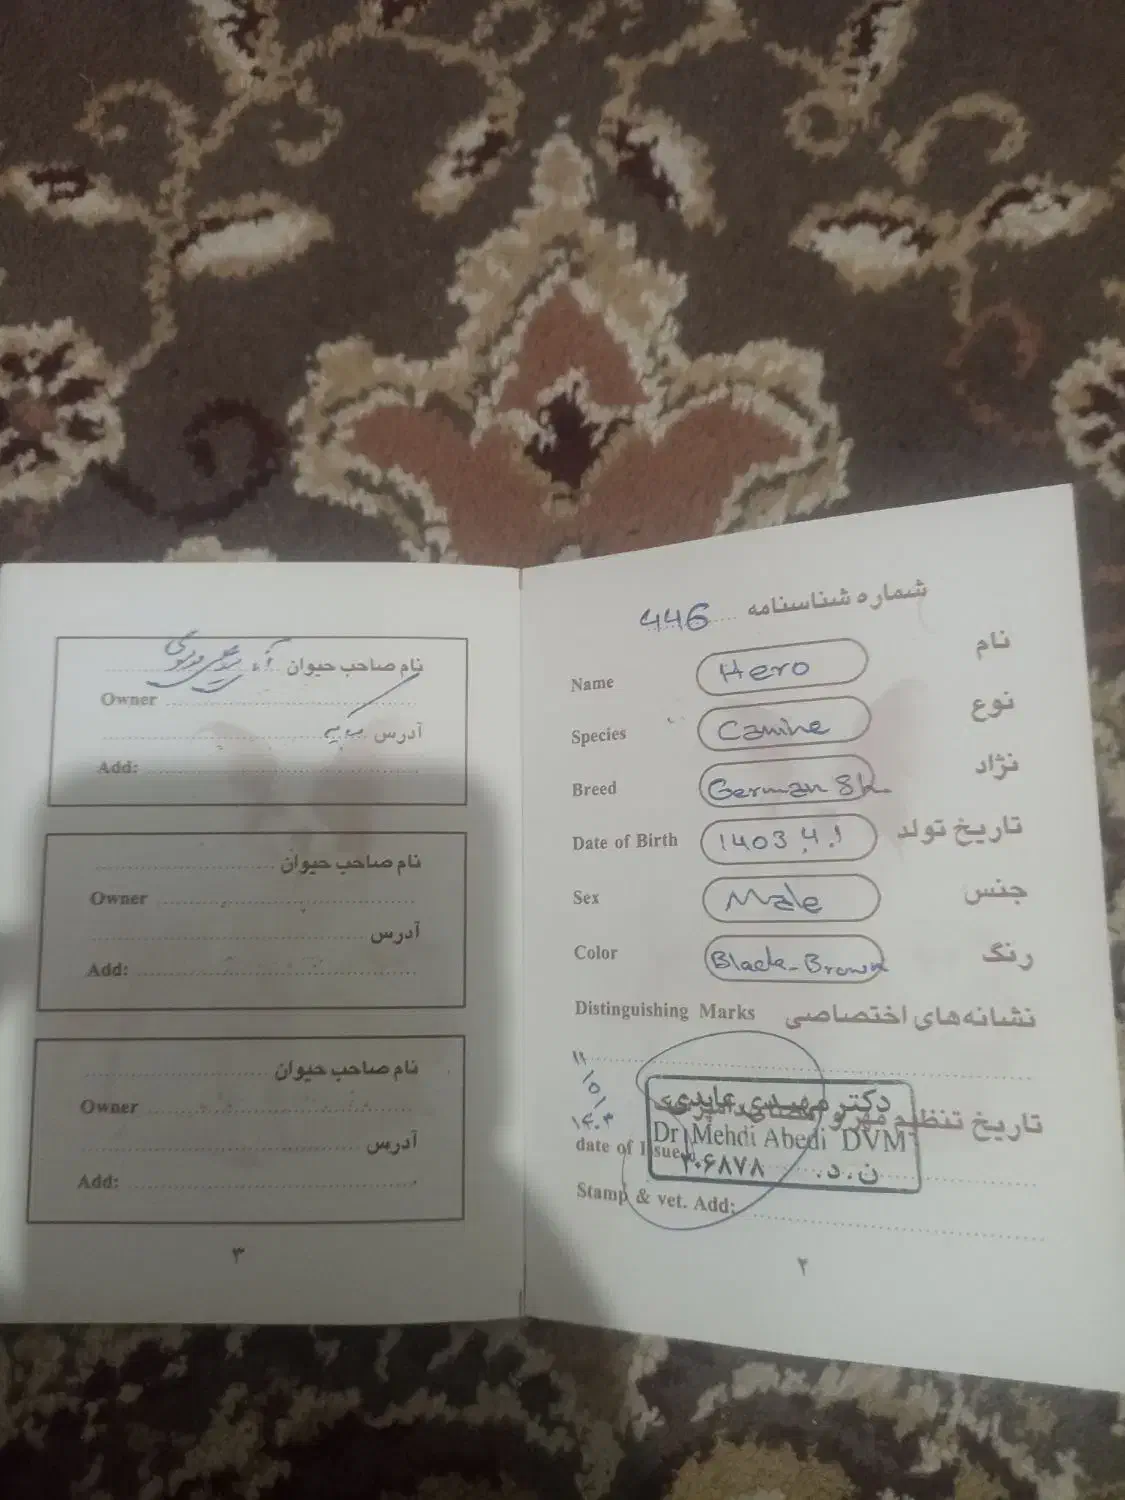 شماره شناسنامه 446
نام
Name Hero
نوع
Species Canine
نژاد
Breed German Sh.
تاریخ تولد
Date of Birth 1403.4.1
جنس
Sex Male
رنگ
Color Black-Brown
نشانه‌های اختصاصی
Distinguishing Marks
تاریخ تنظیم مهر و امضای
date of Issue
دکتر مهدی عابدی
Dr. Mehdi Abedi DVM
ن.د. ۳۰۶۸۷۸
Stamp & vet. Add:
۲
نام صاحب حیوان
Owner
آدرس
Add:
نام صاحب حیوان
Owner
آدرس
Add:
نام صاحب حیوان
Owner
آدرس
Add:
۳